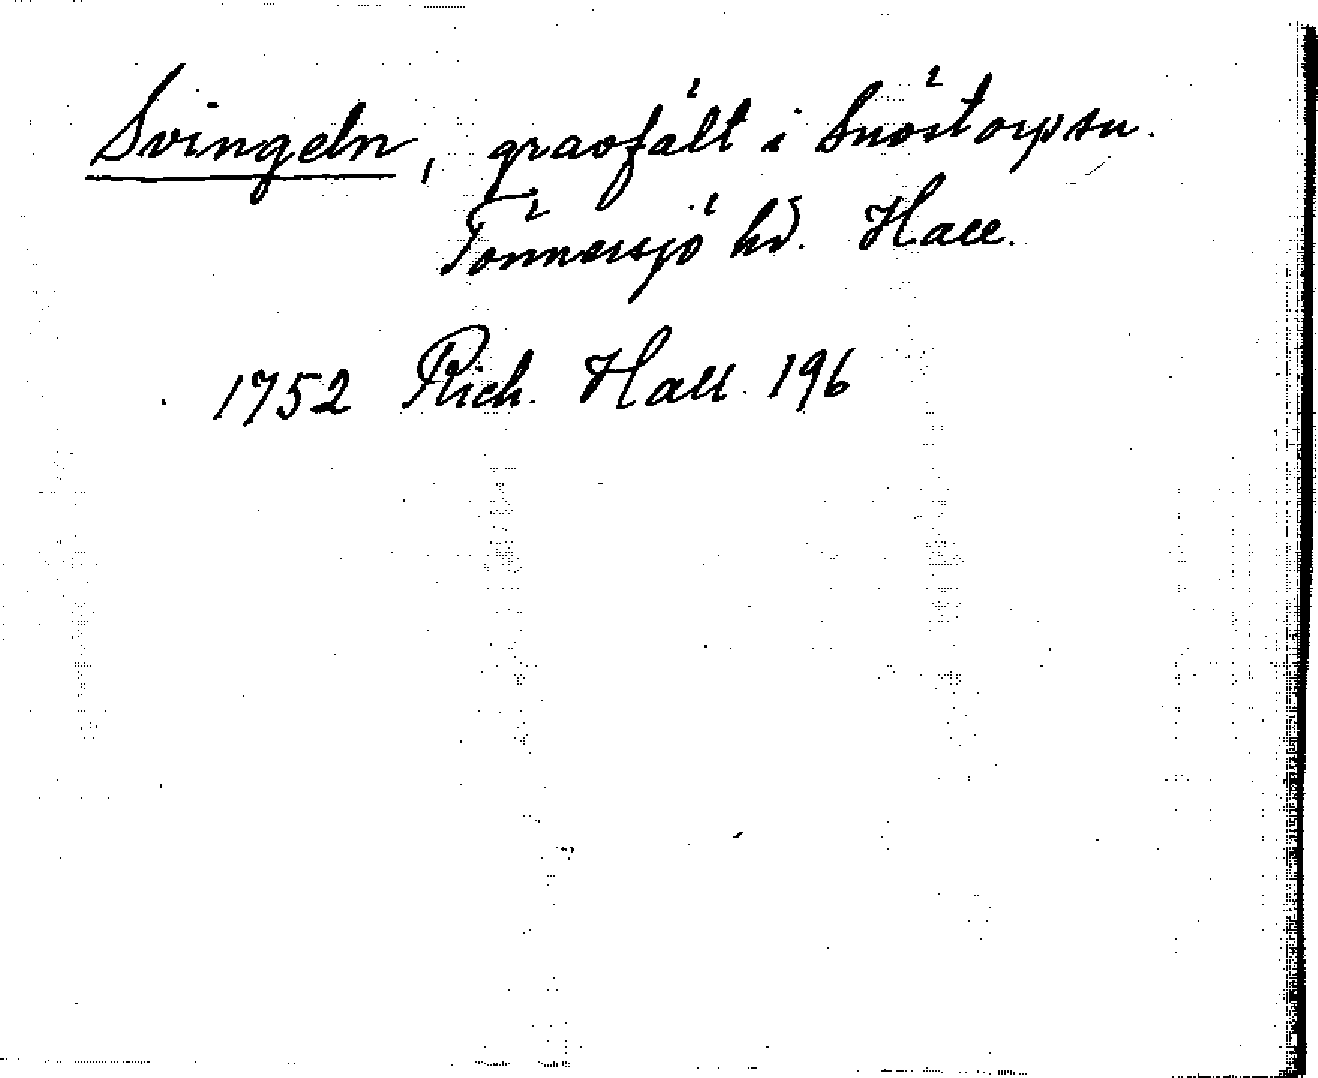 Svingeln, gravfält i Snöstorps sn.
Tönnersjö hd. Hall.
1752 Rich. Hall. 196